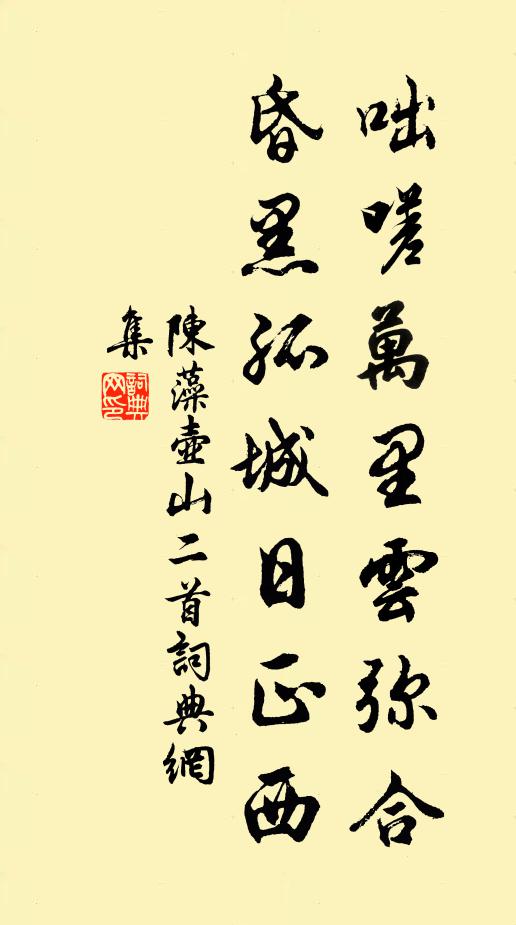 咄嗟萬里雲弥合
昏黑孤城日正西
陳藻壺山二首詞典網
集
詞典網印